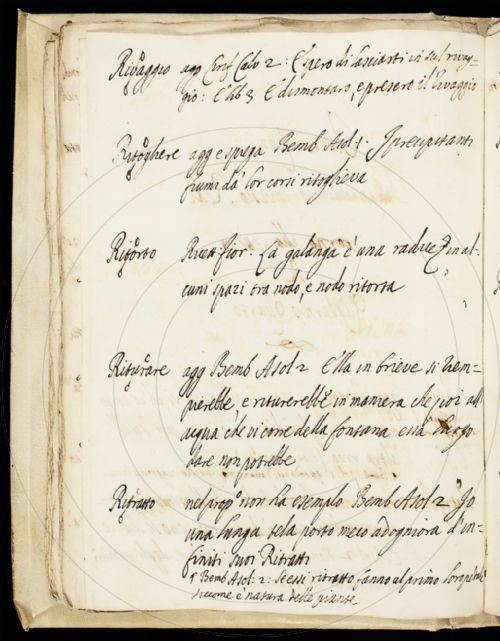 Rivaggio agg Cirif Calv 2: E spero di lasciarti in sul rivag-
gio: E lib 3 E dismontaro, e presero il rivaggio
Ritogliere agg e spiega Bemb Asol 1. I precipitanti
fiumi da' lor corsi ritoglieva
Ritorto Ricett fior: La galanga è una radice in al-
cuni spazi tra nodo, e nodo ritorta
Riturare agg Bemb Asol 2 Ella in brieve si riem-
pierebbe, e riturerebbe in maniera che poi all'
acqua che vi corre della fontana essa luogo
dare non potrebbe
Ritratto nel propo non ha esempio Bemb Asol 2 Io
una lunga tela porto meco adogniora d'in-
finiti suoi Ritratti
Bemb Asol: 2: Se essi ritratto fanno al primo
siccome è natura delle piante